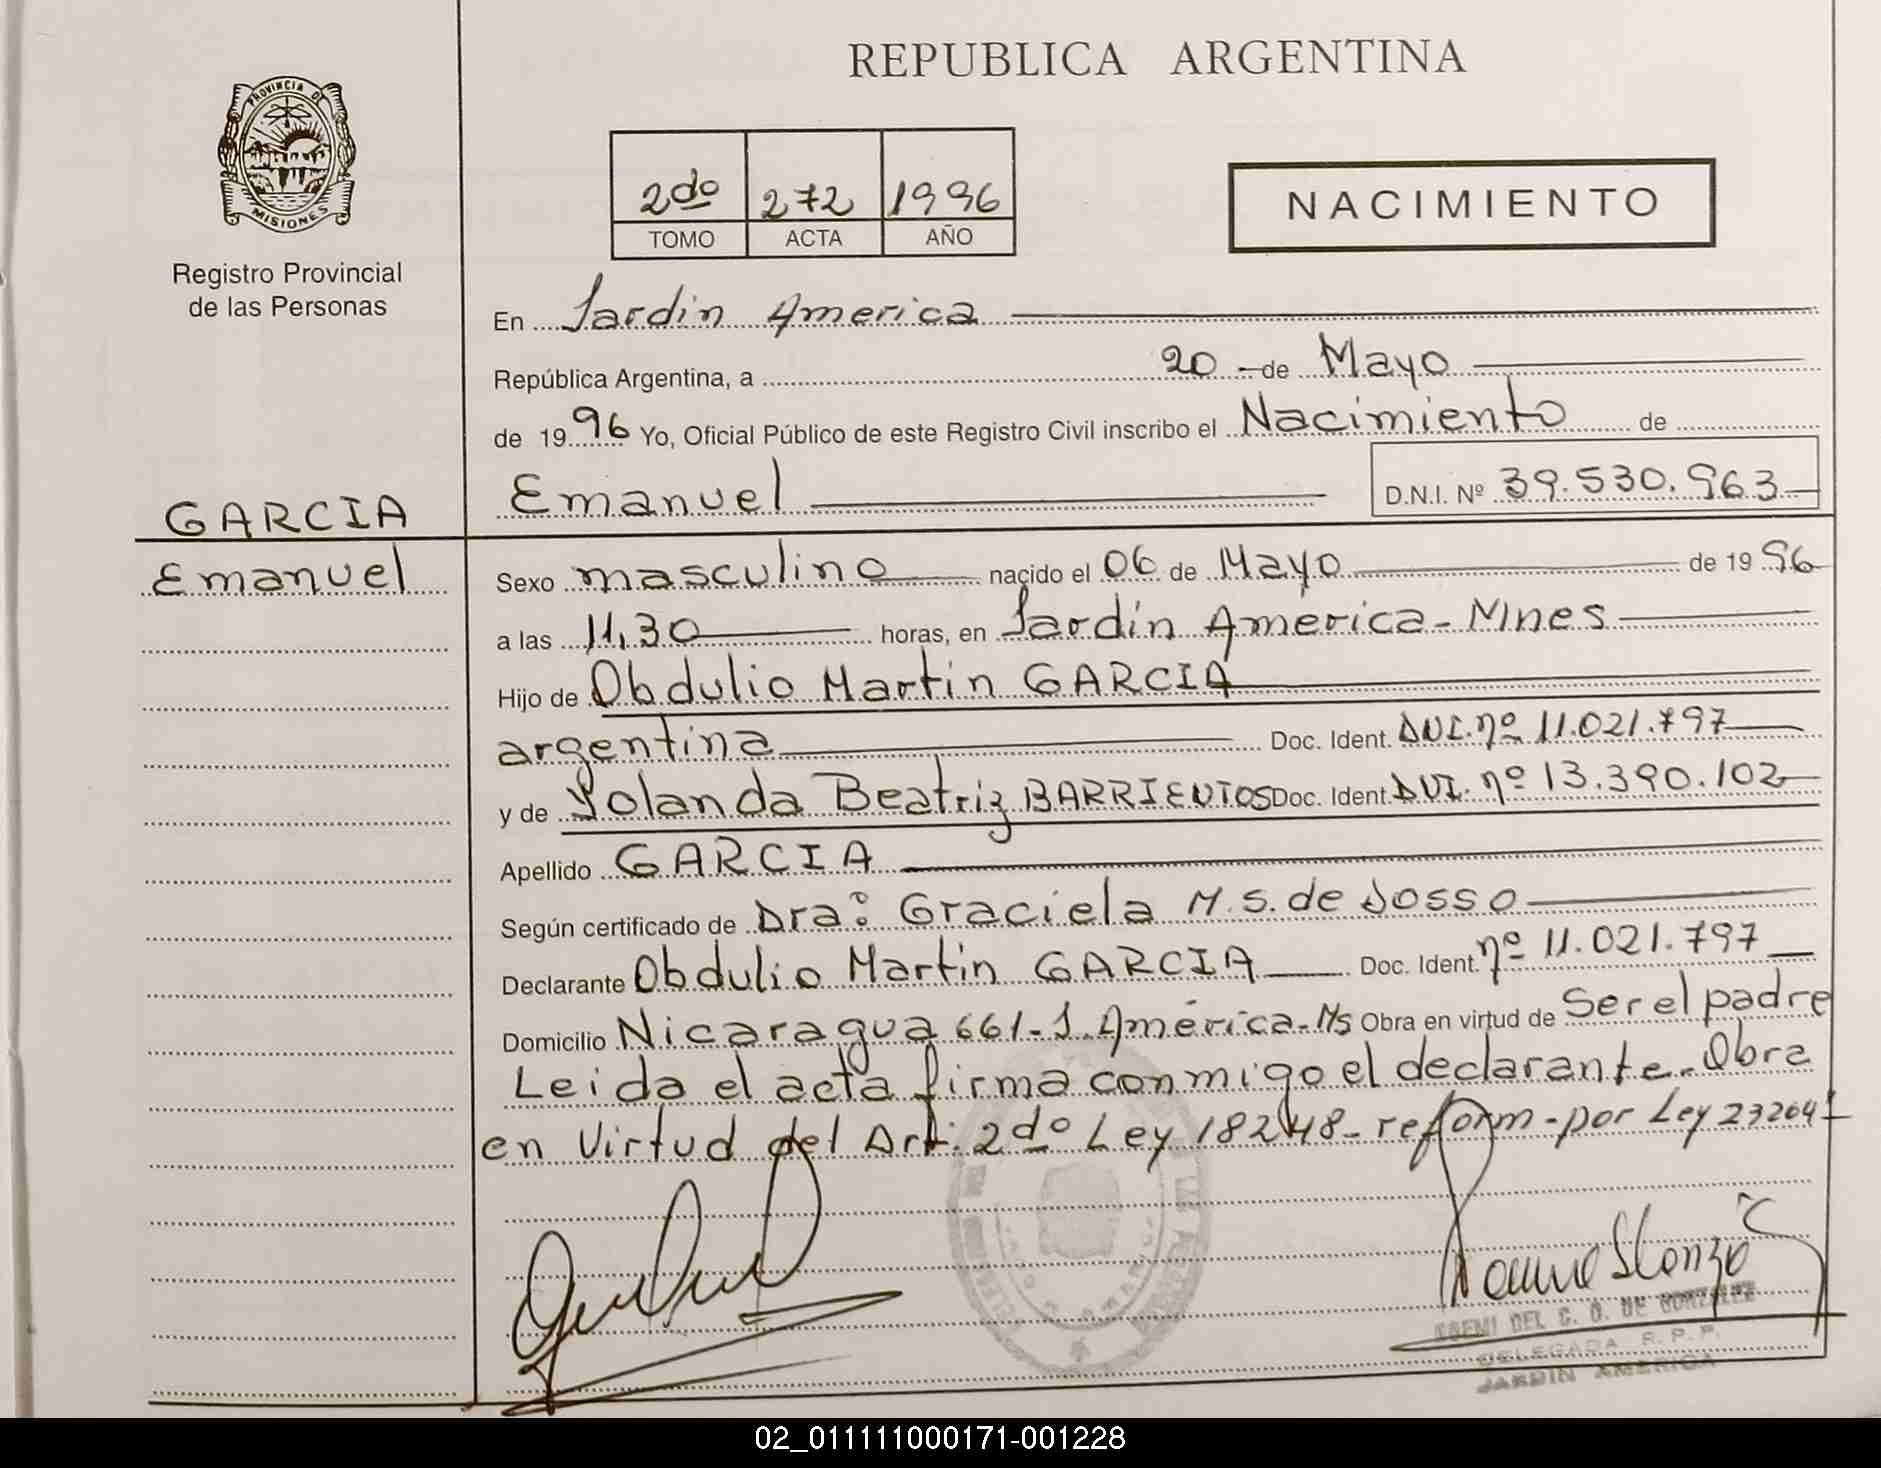 REPUBLICA ARGENTINA
PROVINCIA DE
MISIONES
Registro Provincial
de las Personas
2do 272 1996
TOMO ACTA AÑO
NACIMIENTO
En Jardin America
República Argentina, a 20 de Mayo
de 1996 Yo, Oficial Público de este Registro Civil inscribo el Nacimiento de
Emanuel D.N.I. Nº 39.530.963
GARCIA
Emanuel
Sexo masculino nacido el 06 de Mayo de 1996
a las 11,30 horas, en Jardin America - Mnes
Hijo de Obdulio Martin GARCIA
argentina Doc. Ident. DNI. nº 11.021.797
y de Yolanda Beatriz BARRIENTOS Doc. Ident. DNI. nº 13.390.102
Apellido GARCIA
Según certificado de Dra: Graciela M.S. de Dosso
Declarante Obdulio Martin GARCIA Doc. Ident. nº 11.021.797
Domicilio Nicaragua 661 - J. América - Ms Obra en virtud de Ser el padre
Leida el acta firma conmigo el declarante. Obra
en Virtud del Art: 2do Ley 18248 - reform - por Ley 23264
DEL C. D. DE GONZALEZ
DELEGADA R. P. P.
JARDIN AMERICA
02_011111000171-001228